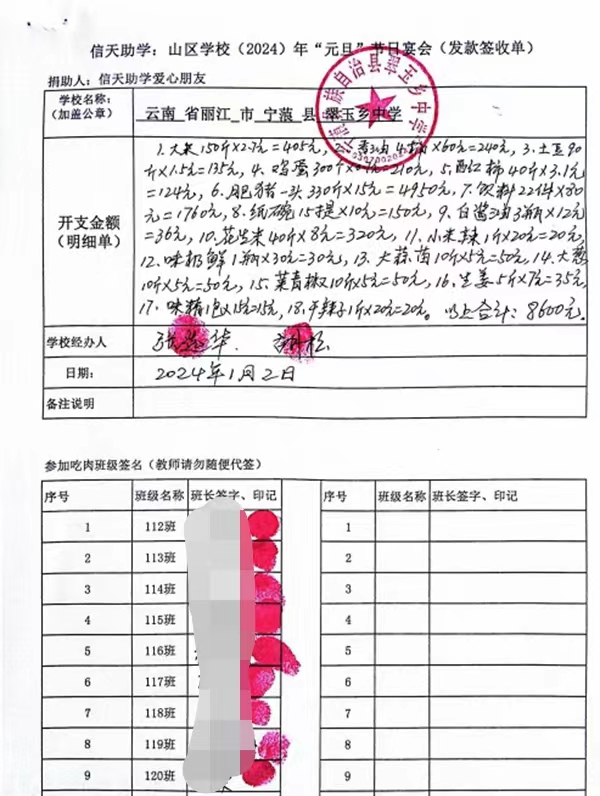 信天助学：山区学校（2024）年“元旦”节日宴会（发款签收单）
捐助人：信天助学爱心朋友
学校名称：
（加盖公章）
云南 省丽江 市 宁蒗 县 翠玉乡中学
族自治县翠玉乡中学
开支金额
（明细单）
1. 大米150斤×2.7元=405元, 2. 香油4桶×60元=240元, 3. 土豆90
斤×1.5元=135元, 4. 鸡蛋300个×0.7元=210元, 5. 西红柿40斤×3.1元
=124元, 6. 肥猪一头330斤×15元=4950元, 7. 饮料22件×80
元=1760元, 8. 纸碗15提×10元=150元, 9. 白酱油3瓶×12元
=36元, 10. 花生米40斤×8元=320元, 11. 小米辣1斤×20元=20元,
12. 味极鲜1瓶×30元=30元, 13. 大蒜苗10斤×5元=50元, 14. 大葱
10斤×5元=50元, 15. 菜青椒10斤×5元=50元, 16. 生姜5斤×7元=35元,
17. 味精1包×15元=15元, 18. 干辣子1斤×20元=20元。以上合计：8600元。
学校经办人
日期：
2024年1月2日
备注说明
参加吃肉班级签名（教师请勿随便代签）
序号 班级名称 班长签字、印记 序号 班级名称 班长签字、印记
1 112班 1
2 113班 2
3 114班 3
4 115班 4
5 116班 5
6 117班 6
7 118班 7
8 119班 8
9 120班 9